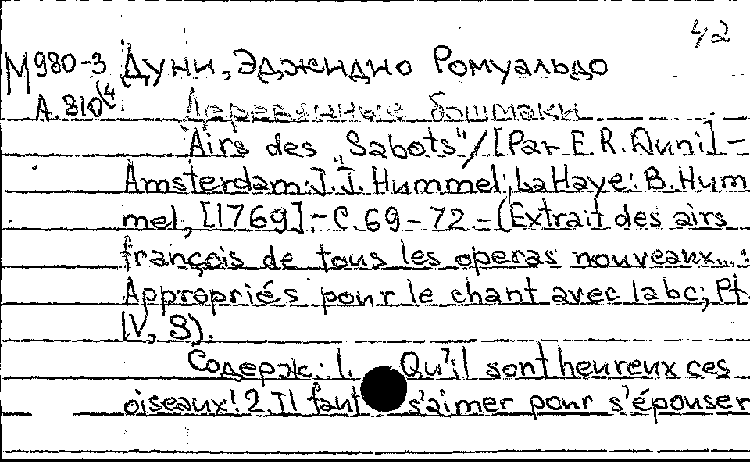 42
М980-3 Дуни, Эджидио Ромуальдо
А.810(4 Деревянные башмаки
"Airs des "Sabots"/[Par E.R.Duni].-
Amsterdam: J.J.Hummel; La Haye: B.Hum
mel, [1769].-С.69-72.-(Extrait des airs
françois de tous les operas nouveaux...:
Appropriés pour le chant avec la bc; Pt
IV, 8).
Содерж.: 1. Qu'il sont heureux ces
oiseaux! 2. Il faut s'aimer pour s'épouser